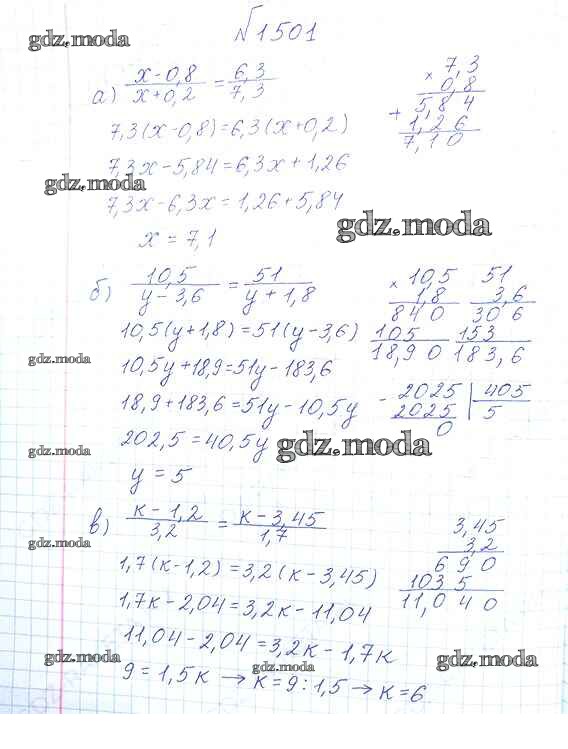 №1501
а) x-0,8/x+0,2 = 6,3/7,3
7,3(x-0,8)=6,3(x+0,2)
7,3x-5,84=6,3x+1,26
7,3x-6,3x=1,26+5,84
x=7,1
× 7,3
0,8
+ 5,84
1,26
7,10
б) 10,5/y-3,6 = 51/y+1,8
10,5(y+1,8)=51(y-3,6)
10,5y+18,9=51y-183,6
18,9+183,6=51y-10,5y
202,5=40,5y
y=5
× 10,5
1,8
840
105
18,90
51
3,6
306
153
183,6
- 2025 | 405
2025 | 5
0
в) к-1,2/3,2 = к-3,45/1,7
1,7(к-1,2)=3,2(к-3,45)
1,7к-2,04=3,2к-11,04
11,04-2,04=3,2к-1,7к
9=1,5к → к=9:1,5 → к=6
3,45
3,2
690
1035
11,040
gdz.moda
gdz.moda
gdz.moda
gdz.moda
gdz.moda
gdz.moda
gdz.moda
gdz.moda
gdz.moda
gdz.moda